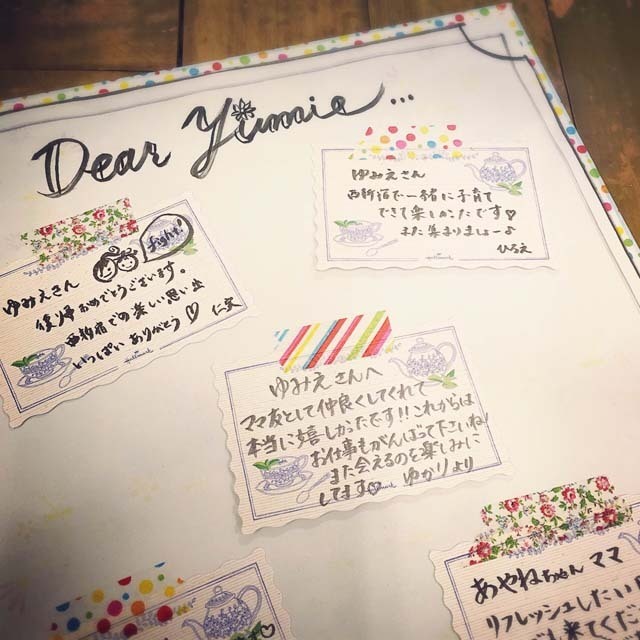 Dear Yumie...
ゆみえさん
西新宿で一緒に子育て
できて楽しかったです♡
また集まりましょーよ
ひろえ
fight!
ゆみえさん
復帰おめでとうございます。
西新宿での楽しい思い出
いっぱいありがとう♡
Hallmark
ゆみえさんへ
ママ友として仲良くしてくれて
本当に嬉しかったです!!これからは
お仕事もがんばって下さいね!
また会えるのを楽しみに
してます♡ ゆかりより
あやねちゃん ママ
リフレッシュしたい